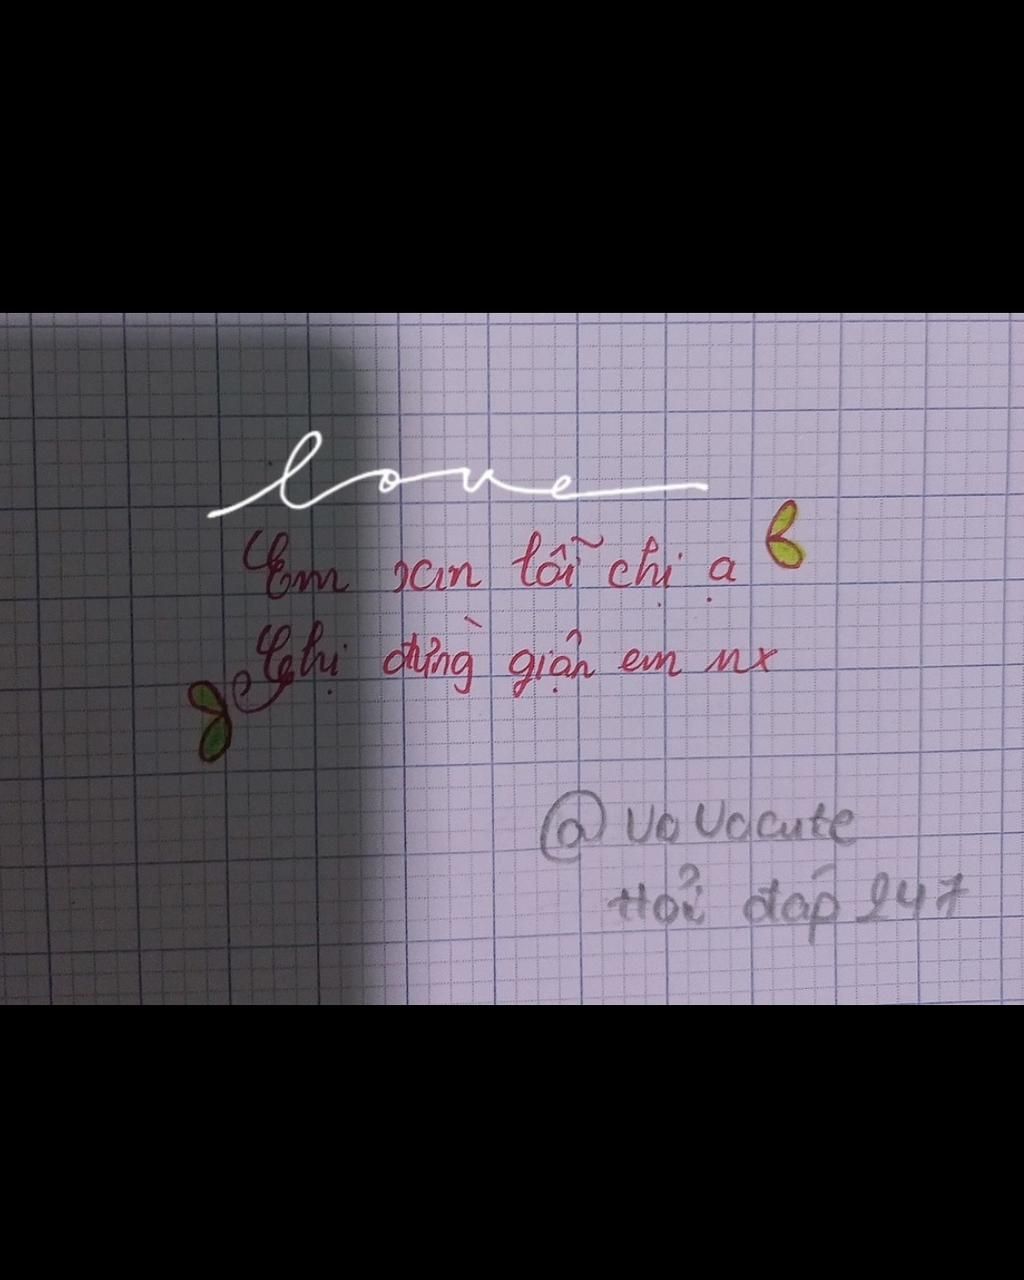 love
Em xin lỗi chị ạ
Chị đừng giận em nx
@ Vo Vo cute
Hỏi đáp 247